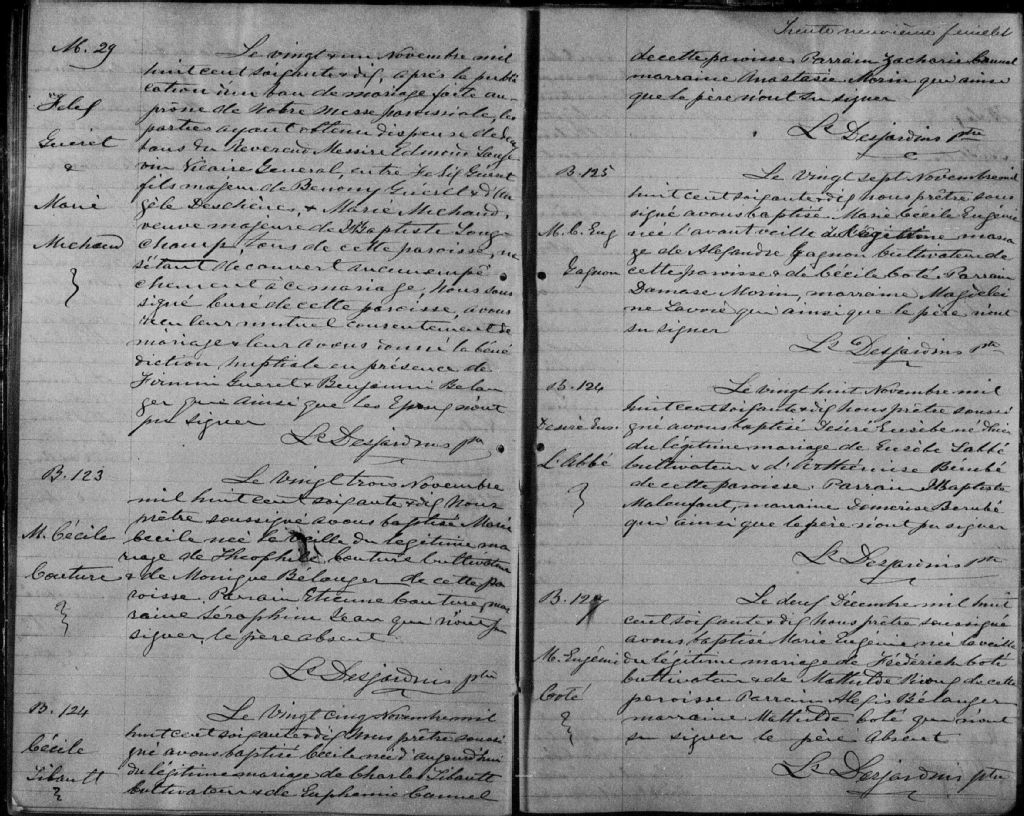 M. 29
Felix
Guéret
&
Marie
Michaud
Le vingt & un Novembre mil
huit cent soixante & dix, après la publi
cation d'un ban de mariage faite au
prône de notre Messe paroissiale, les
parties ayant obtenu dispense de deux
bans du Reverend Messire Edmond Lange
vin Vicaire General, entre Felix Guéret
fils majeur de Benony Guéret & d'An
gèle Deschênes, & Marie Michaud,
veuve majeure de JBaptiste Long-
champ, tous de cette paroisse, ne
s'étant découvert aucun empê
chement à ce mariage, Nous sous
signé Curé de cette paroisse, avons
reçu leur mutuel consentement de
mariage & leur avons donné la béné
diction nuptiale en présence de
Firmin Gueret & Benjamin Belan
ger qui ainsi que les Epoux n'ont
pu signer
Ls Desjardins ptre
B. 123
M. Cécile
Couture
Le vingt trois Novembre
mil huit cent soixante & dix Nous
prêtre soussigné avons baptisé Marie
Cecile née la veille du legitime ma
riage de Théophile Couture Cultivateur
& de Monique Bélanger de cette pa
roisse. Parrain Etienne Couture, mar
raine Séraphine Jean qui n'ont pu
signer, le père absent
Ls Desjardins ptre
B. 124
Cécile
Tibault
Le vingt cinq Novembre mil
huit cent soixante & dix Nous prêtre soussi
gné avons baptisé Cecile née d'aujourd'hui
du légitime mariage de Charles Tibault
Cultivateur & de Euphemie Cannel
Trente neuvième feuillet
de cette paroisse Parrain Zacharie Cannel
marraine Anastasie Morin qui ainsi
que le père n'ont su signer
Ls Desjardins ptre
B. 125
M. C. Eug
Gagnon
Le vingt sept Novembre mil
huit cent soixante & dix nous prêtre sous
signé avons baptisé Marie Cecile Eugenie
née l'avant veille du légitime maria
ge de Alexandre Gagnon Cultivateur de
cette paroisse & de Cécile Coté. Parrain
Damase Morin, marraine Magdelei
ne Lavoie qui ainsi que le père n'ont
su signer
Ls Desjardins ptre
B. 124
Desiré Eus.
L'Abbé
Le vingt huit Novembre mil
huit cent soixante & dix Nous prêtre soussi
gné avons baptisé Désiré Eusèbe né d'hier
du légitime mariage de Eusèbe Labbé
Cultivateur & d'Arthémise Bérubé
de cette paroisse. Parrain JBaptiste
Malenfant, marraine Demerise Berubé
qui ainsi que le père n'ont pu signer
Ls Desjardins ptre
B. 127
M. Eugénie
Coté
Le deux Décembre mil huit
cent soixante & dix Nous prêtre soussigné
avons baptisé Marie Eugénie née la veille
du légitime mariage de Fédérich Coté
Cultivateur & de Mathilde Rioux de cette
paroisse Parrain Alexis Bélanger
marraine Mathilde Coté qui n'ont
su signer le père Absent
Ls Desjardins ptre